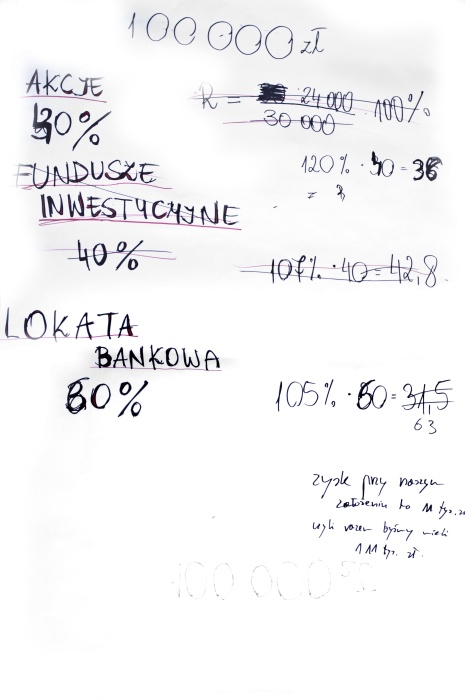 100 000 zł
AKCJE
R = 24 000 · 100%
30 000
30%
120% · 30 = 36
FUNDUSZE
INWESTYCYJNE
40%
107% · 40 = 42,8
LOKATA
BANKOWA
60%
105% · 60 = 31,5
63
zysk przy naszym
założeniu to 11 tyś. zł
czyli razem byśmy mieli
111 tyś. zł.
100 000 zł